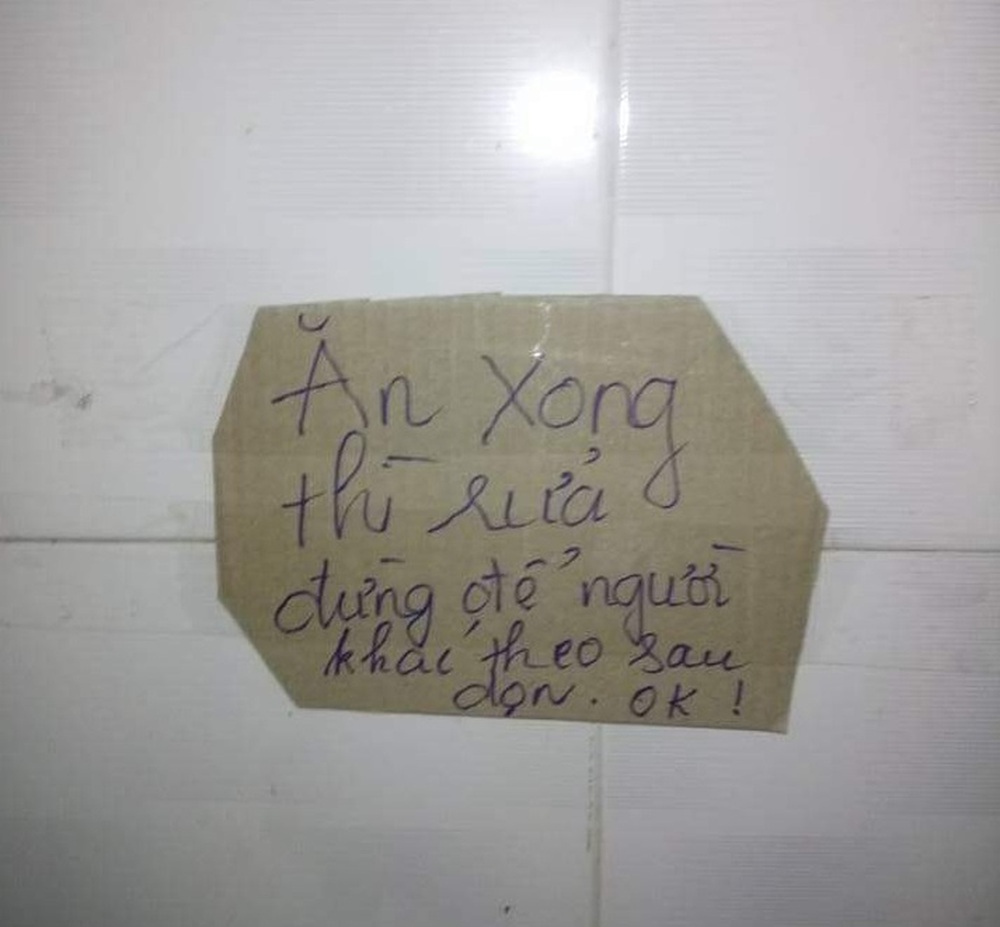 Ăn Xong
thì rửa
đừng để người
khác theo sau
dọn. OK !